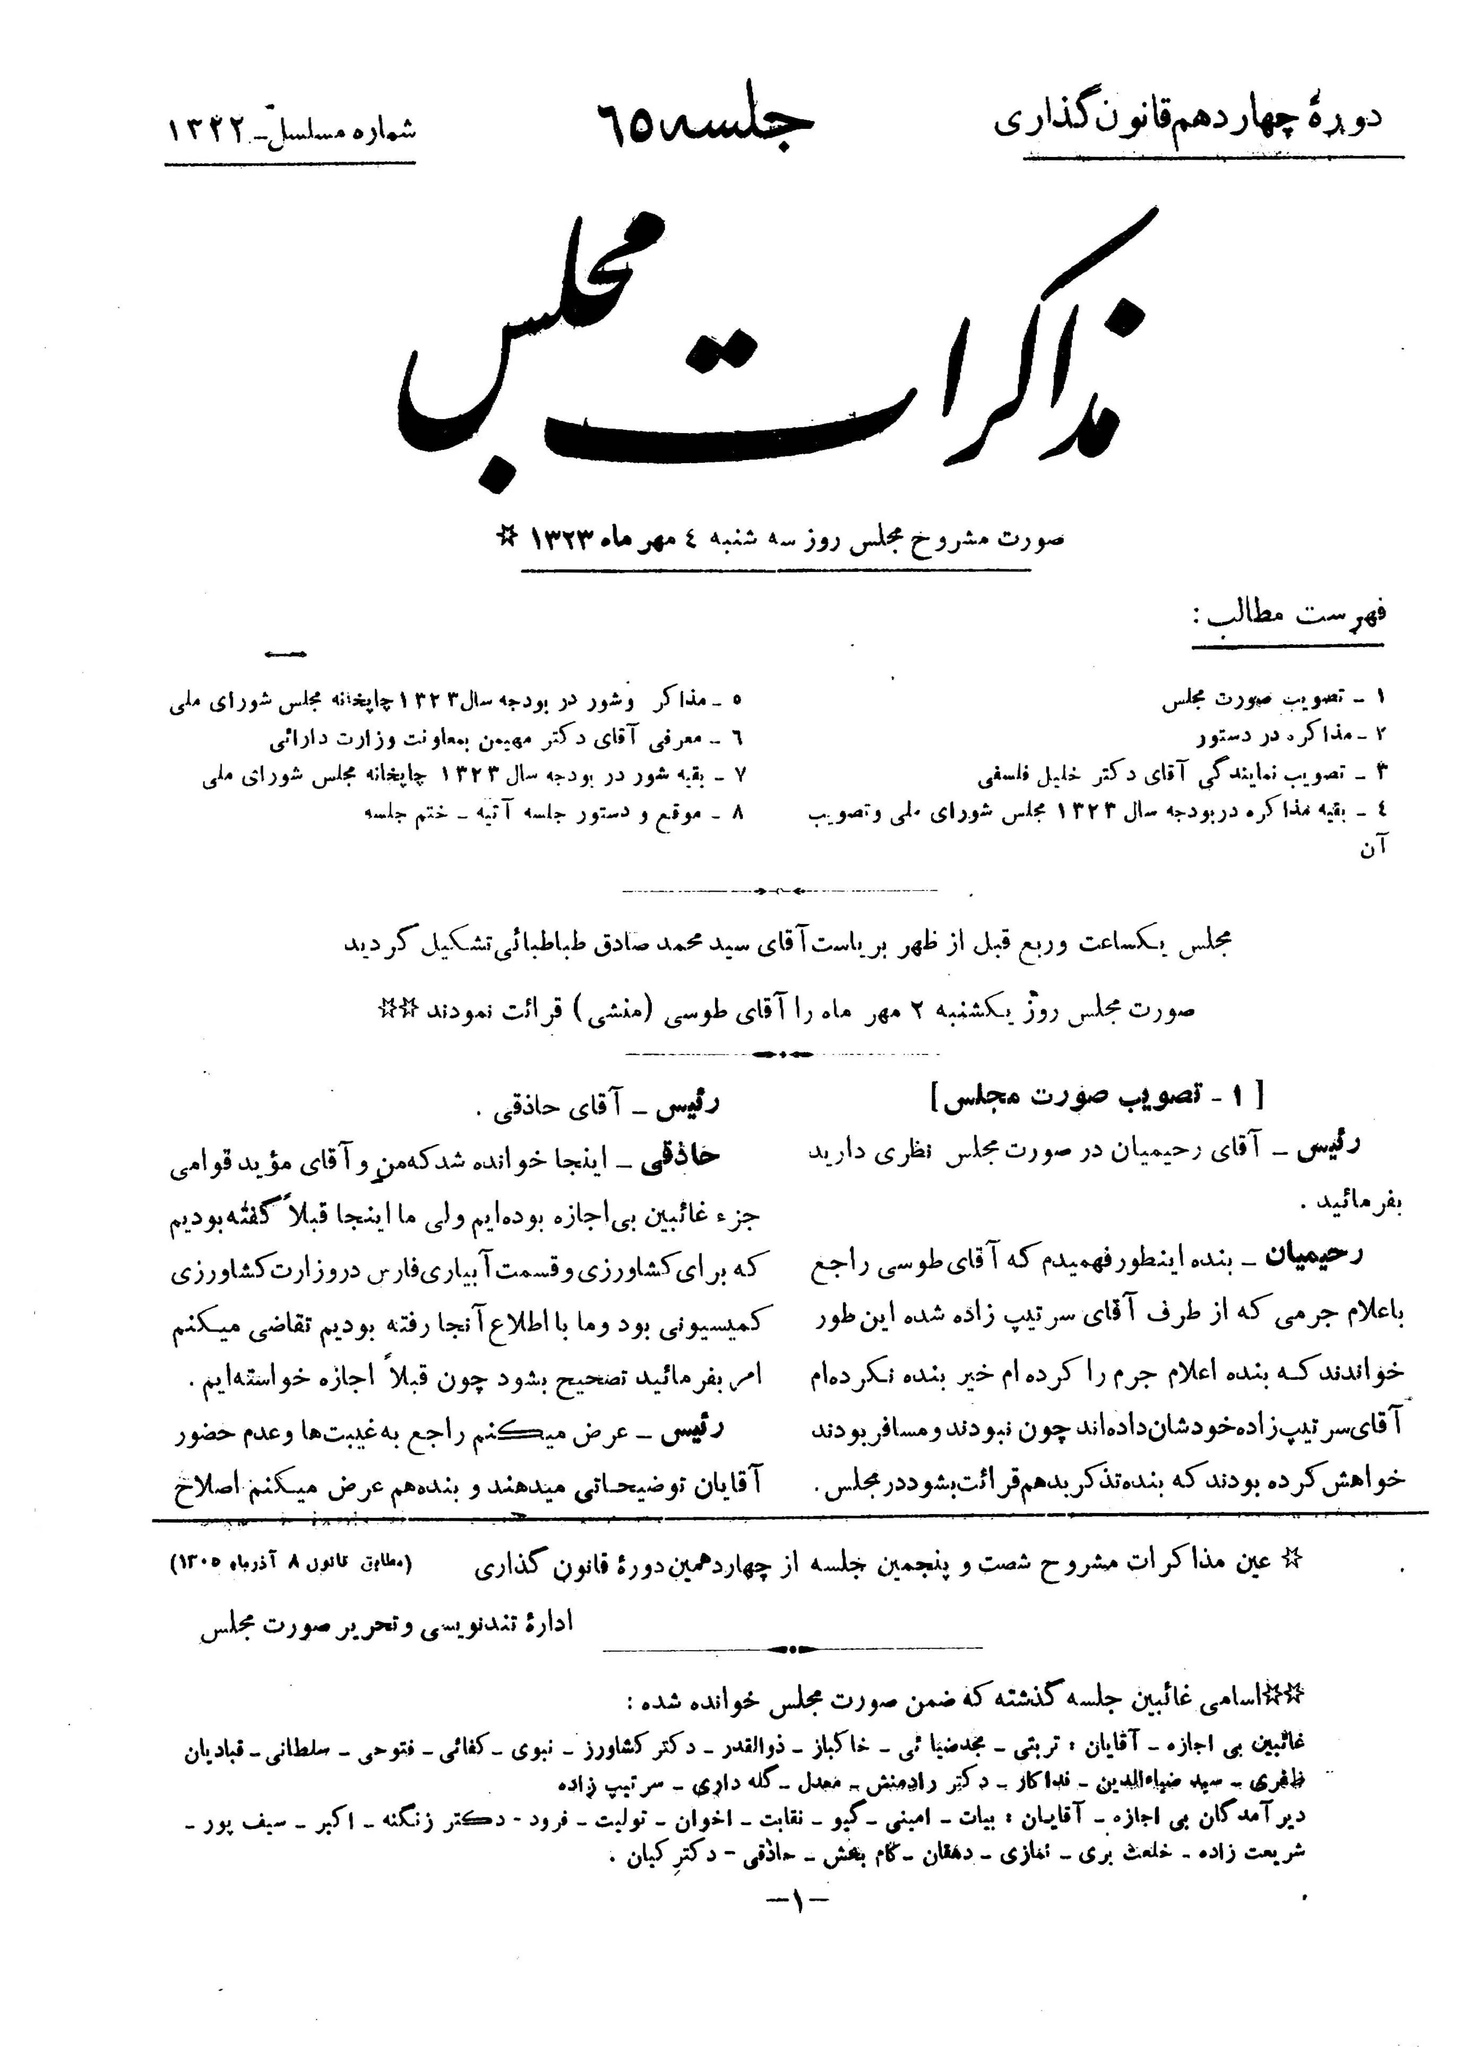 دورهٔ چهاردهم قانون گذاری
جلسه ٦٥
شماره مسلسل - ۱۳۲۲
مذاکرات مجلس
صورت مشروح مجلس روز سه شنبه ٤ مهر ماه ۱۳۲۳ ☆
فهرست مطالب :
۱ - تصویب صورت مجلس
۲ - مذاکره در دستور
۳ - تصویب نمایندگی آقای دکتر خلیل فلسفی
٤ - بقیه مذاکره در بودجه سال ۱۳۲۳ مجلس شورای ملی و تصویب
آن
٥ - مذاکر وشور در بودجه سال ۱۳۲۳ چاپخانه مجلس شورای ملی
٦ - معرفی آقای دکتر مهیمن بمعاونت وزارت دارائی
۷ - بقیه شور در بودجه سال ۱۳۲۳ چاپخانه مجلس شورای ملی
۸ - موقع و دستور جلسه آتیه - ختم جلسه
مجلس یکساعت وربع قبل از ظهر بریاست آقای سید محمد صادق طباطبائی تشکیل گردید
صورت مجلس روز یکشنبه ۲ مهر ماه را آقای طوسی (منشی) قرائت نمودند ☆☆
[ ۱ - تصویب صورت مجلس ]
رئیس - آقای رحیمیان در صورت مجلس نظری دارید
بفرمائید .
رحیمیان - بنده اینطور فهمیدم که آقای طوسی راجع
باعلام جرمی که از طرف آقای سرتیپ زاده شده این طور
خواندند که بنده اعلام جرم را کرده ام خیر بنده نکرده‌ام
آقای سرتیپ زاده خودشان داده‌اند چون نبودند و مسافر بودند
خواهش کرده بودند که بنده تذکر بدهم قرائت بشود در مجلس .
رئیس - آقای حاذقی .
حاذقی - اینجا خوانده شد که من و آقای مؤید قوامی
جزء غائبین بی اجازه بوده‌ایم ولی ما اینجا قبلاً گفته بودیم
که برای کشاورزی و قسمت آبیاری فارس در وزارت کشاورزی
کمیسیونی بود وما با اطلاع آنجا رفته بودیم تقاضی میکنم
امر بفرمائید تصحیح بشود چون قبلاً اجازه خواسته‌ایم .
رئیس - عرض میکنم راجع به غیبت‌ها و عدم حضور
آقایان توضیحاتی میدهند و بنده‌هم عرض میکنم اصلاح
☆ عین مذاکرات مشروح شصت و پنجمین جلسه از چهاردهمین دورهٔ قانون گذاری (مطابق قانون ۸ آذرماه ۱۳۰٥)
ادارهٔ تندنویسی و تحریر صورت مجلس
☆☆ اسامی غائبین جلسه گذشته که ضمن صورت مجلس خوانده شده :
غائبین بی اجازه - آقایان : تربتی - مجدضیائی - خاکباز - ذوالقدر - دکتر کشاورز - نبوی - کفائی - فتوحی - سلطانی - قبادیان
ظفری - سید ضیاءالدین - فداکار - دکتر رادمنش - معدل - گله داری - سرتیپ زاده
دیر آمدگان بی اجازه - آقایان : بیات - امینی - گیو - نقابت - اخوان - تولیت - فرود - دکتر زنگنه - اکبر - سیف پور -
شریعت زاده - خلعت بری - نمازی - دهقان - کام بخش - حاذقی - دکتر کیان .
-۱-